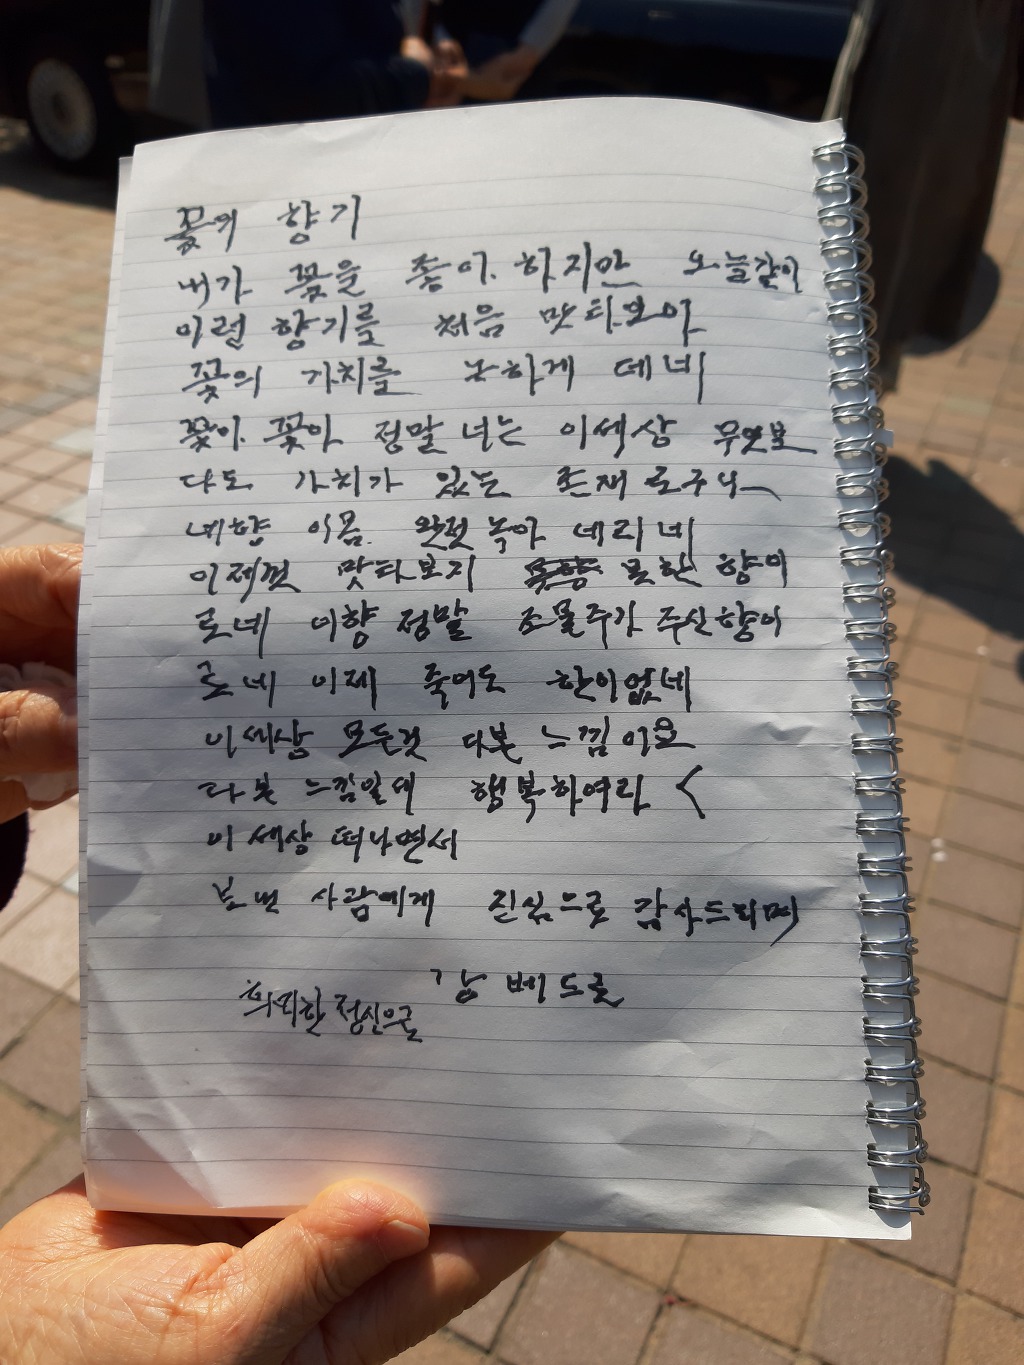 꽃의 향기
내가 꽃을 좋아 하지만 오늘같이
이런 향기를 처음 맛타보아
꽃의 가치를 논하게 데네
꽃아 꽃아 정말 너는 이세상 무엇보
다도 가치가 있는 존재 로구나
네향 이몸 완젓 녹아 네리네
이제껏 맛타보지 못한 향이
로네 이향 정말 조물주가 주신향이
로네 이제 죽어도 한이없네
이세상 모든것 다본 느낌이요
다본 느낌일세 행복하여라 <
이세상 떠나면서
보낸 사람에게 진심으로 감사드리며
강베드로
희미한 정신으로